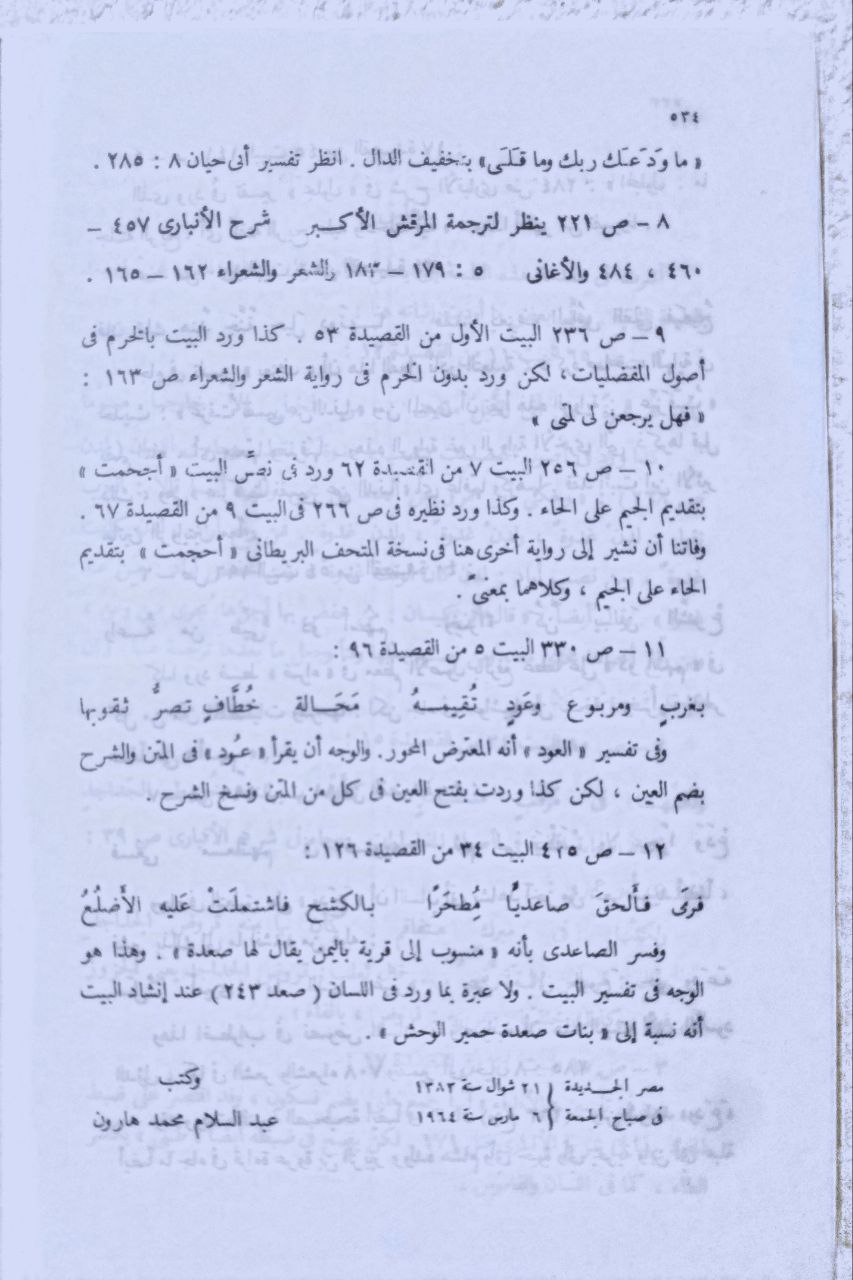 ٥٣٤
« ما وَدَعَك ربك وما قَلَى» بتخفيف الدال . انظر تفسير أبى حيان ٨ : ٢٨٥ .
٨ – ص ٢٢١ ينظر لترجمة المرقش الأكبر شرح الأنبارى ٤٥٧ –
٤٦٠ ، ٤٨٤ والأغانى ٥ : ١٧٩ – ١٨٣ والشعر والشعراء ١٦٢ – ١٦٥ .
٩ – ص ٢٣٦ البيت الأول من القصيدة ٥٣ . كذا ورد البيت بالخرم فى
أصول المفضليات، لكن ورد بدون الخرم فى رواية الشعر والشعراء ص ١٦٣ :
« فهل يرجعن لى لمتى »
١٠ – ص ٢٥٦ البيت ٧ من القصيدة ٦٢ ورد فى نصّ البيت « أجحمت »
بتقديم الجيم على الحاء . وكذا ورد نظيره فى ص ٢٦٦ فى البيت ٩ من القصيدة ٦٧ .
وفاتنا أن نشير إلى رواية أخرى هنا فى نسخة المتحف البريطانى « أحجمت » بتقديم
الحاء على الجيم ، وكلاهما بمعنىً .
١١ – ص ٣٣٠ البيت ٥ من القصيدة ٩٦ :
بغربٍ ومربوع وعَودٍ تُقِيمــهُ مَحَـالة خُطَّافٍ تصرُّ ثقوبها
وفى تفسير « العود » أنه المعترض المحور. والوجه أن يقرأ « عُود » فى المتن والشرح
بضم العين ، لكن كذا وردت بفتح العين فى كل من المتن ونسخ الشرح .
١٢ – ص ٤٢٥ البيت ٣٤ من القصيدة ١٢٦ :
فرمَى فأَلحقَ صاعديًّا مُِطحَرًا بالكشح فاشتملَتْ عَليه الأَضلُعُ
وفسر الصاعدى بأنه « منسوب إلى قرية باليمن يقال لها صعدة » . وهذا هو
الوجه فى تفسير البيت . ولا عبرة بما ورد فى اللسان ( صعد ٢٤٣ ) عند إنشاد البيت
أنه نسبة إلى « بنات صعدة حمير الوحش » .
مصر الجـديدة } ٢١ شوال سنة ١٣٨٣ وكتب
فى صباح الجمعة } ٦ مارس سنة ١٩٦٤ عبد السلام محمد هارون